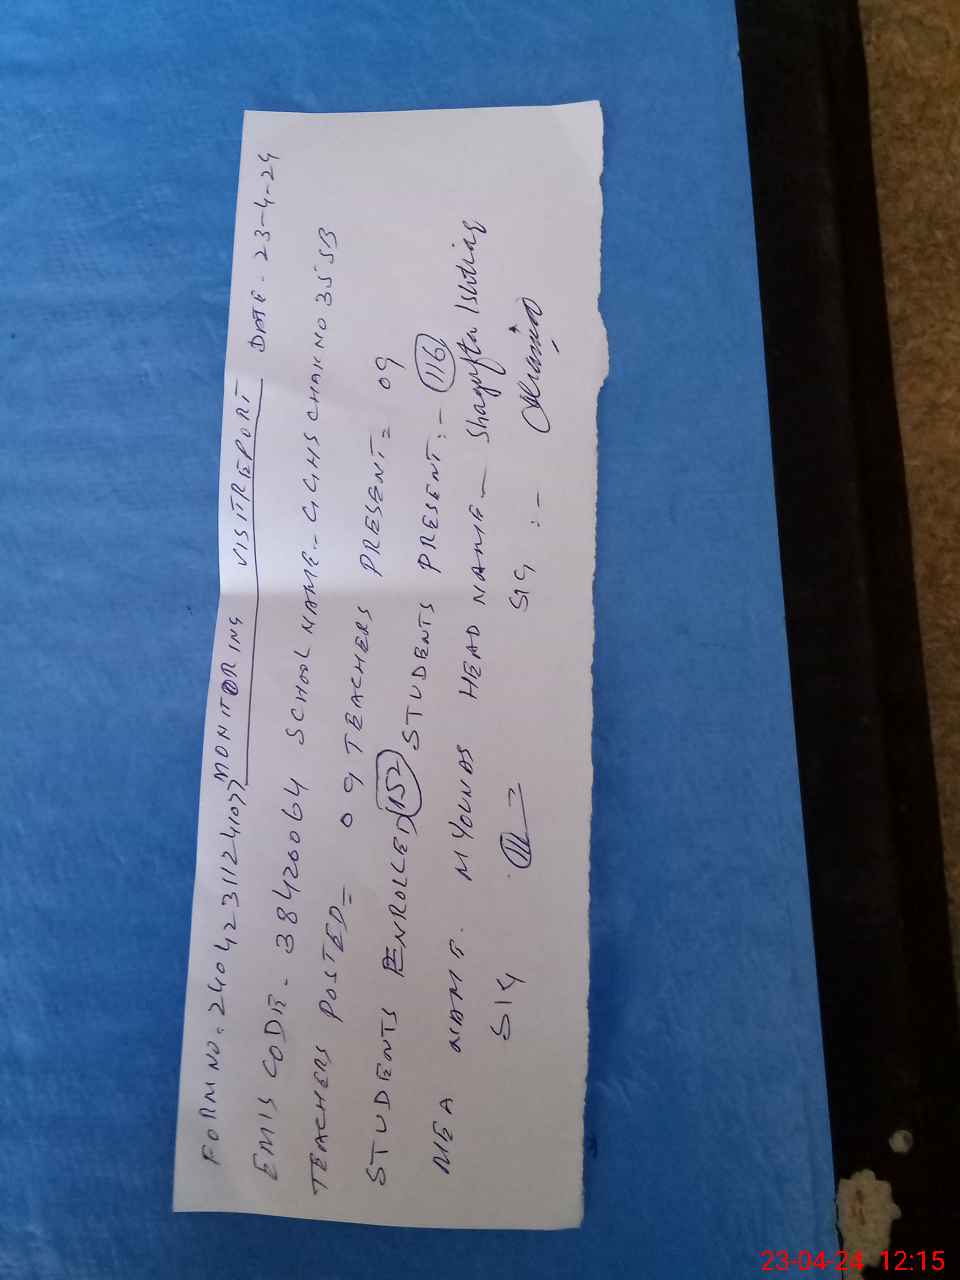 FORM NO. 24042311241077 MONITORING VISIT REPORT DATE. 23-4-24
EMIS CODE. 38420064 SCHOOL NAME. GGHS CHAK NO 35 SB
TEACHERS POSTED= 09 TEACHERS PRESENT= 09
STUDENTS ENROLLED 152 STUDENTS PRESENT:- 116
MEA NAME. M YOUNAS HEAD NAME- Shagufta Ishtiaq
SIG SIG :-
23-04-24 12:15